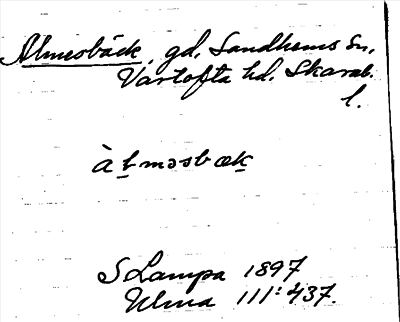 Almesbäck, gd, Sandhems sn,
Vartofta hd. Skarab.
l.
à l̠məsbæk̠
S Lampa 1897
Ulma 111:437.